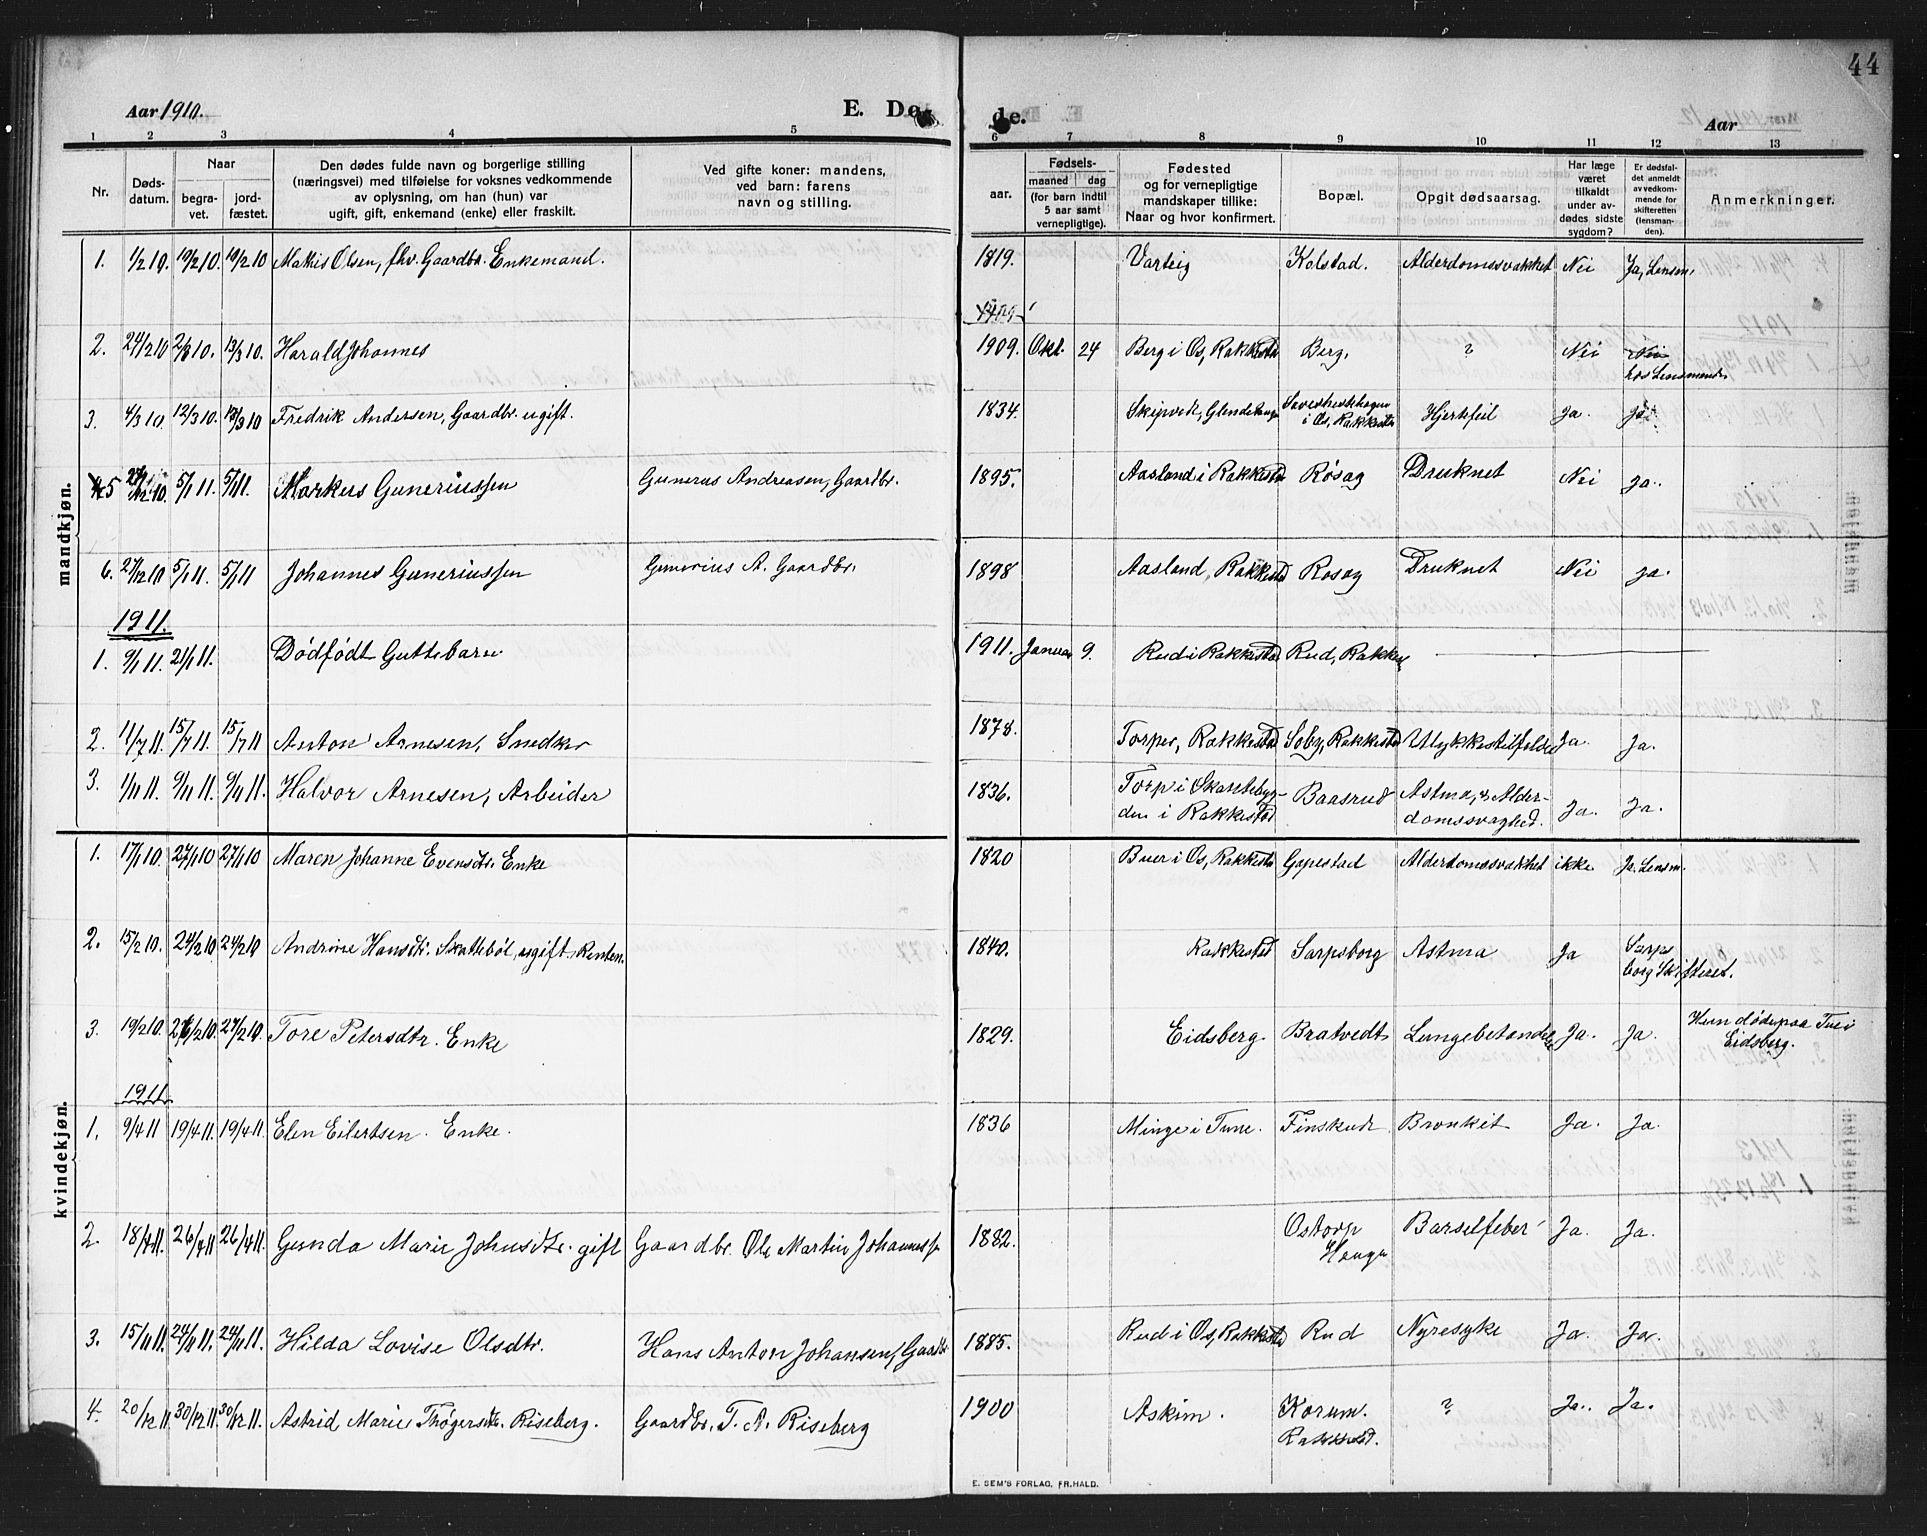 44
Aar 1910.
E. Dø
de.
Aar
1 2 3 4 5 6 7 8 9 10 11 12 13
Nr.
Døds-
datum.
Naar
begra-
vet.
jord-
fæstet.
Den dødes fulde navn og borgerlige stilling
(næringsvei) med tilføielse for voksnes vedkommende
av oplysning, om han (hun) var
ugift, gift, enkemand (enke) eller fraskilt.
Ved gifte koner: mandens,
ved barn: farens
navn og stilling.
aar.
Fødsels-
maaned dag
(for barn indtil
5 aar samt
vernepligtige).
Fødested
og for vernepligtige
mandskaper tillike:
Naar og hvor konfirmert.
Bopæl.
Opgit dødsaarsag.
Har læge
været
tilkaldt
under av-
dødes sidste
sygdom?
Er dødsfal-
det anmeldt
av vedkom-
mende for
skifteretten
(lensman-
den).
Anmerkninger.
mandkjøn.
1. 1/2 10. 19/2 10. 19/2 10 Mathis Olsen, fhv. Gaardbr. Enkemand. 1819. Varteig Kolstad. Alderdomssvakket Nei Ja, Lensm.
2. 24/2 10 2/3 10. 13/3 10. Harald Johannes 1909. Okt. 24 Berg i Os, Rakkestad Berg. ? Nei Nei
hos Lensmanden
3. 4/3 10. 12/3 10. 13/3 10 Fredrik Andersen, Gaardbr. ugift. 1834. Skiptvedt, i Os, Rakkestad Hjertefeil Ja. Ja.
5 27/12 10. 5/1 11. 5/1 11. Markus Guneriussen Gunerus Andreasen, Gaardbr. 1895. Aasland i Rakkestad Røsag Druknet Nei Ja.
6. 27/12 10 5/1 11. 5/1 11 Johannes Guneriussen Gunerius A. Gaardbr. 1898 Aasland, Rakkestad Rosag Druknet Nei ja.
1911.
1. 9/1 11. 21/1 11. Dødfødt Guttebarn 1911. Januar 9. Rud i Rakkestad Rud, Rakkes
2. 11/7 11. 15/7 11. 15/7 11 Anton Arnesen, Snedker 1878. Torper, Rakkestad Soby, Rakkestad Ulykkestilfelde Ja. Ja.
3. 1/11 11. 9/11 11. 9/11 11. Halvor Arnesen, Arbeider 1836. Torp i Skantebyg-
den i Rakkestad Baasrud Astma, & Alder-
domssvaghed. Ja. Ja.
kvindekjøn.
1. 17/1 10. 27/1 10 27/1 10 Maren Johanne Evensdtr. Enke 1820 Buer i Os, Rakkestad Gapestad Alderdomssvakhet ikke Ja. Lensm.
2. 15/2 10. 24/2 10 24/2 10 Andrine Hansdtr. Skattebøl, ugift, Renten. 1840. Rakkestad Sarpsborg Astma Ja Sarps
borg Skifteret.
3. 19/2 10. 26/2 10. 27/2 10 Tore Petersdtr. Enke 1829. Eidsberg. Bratvedt Lungebetændelse Ja. Ja. Hun døde paa
Eidsberg.
1911
1. 9/4 11 19/4 11. 19/4 11. Elen Eilertsen. Enke. 1836 Minge i Tune. Finskud Bronkit Ja. Ja.
2. 18/4 11. 26/4 11 26/4 11. Gunda Marie Johnsdtr. gift Gaardbr. Ole Martin Johannessen 1882. Ostorp
Haugen Barselfeber Ja. Ja.
3. 15/11 11. 24/11 11. 24/11 11. Hilda Lovise Olsdtr. Hans Anton Johansen, Gaardbr. 1885. Rud i Os, Rakkestad Rud Nyresyke Ja. Ja.
4. 20/12 11. 30/12 11. 30/12 11. Astrid Marie Thøgersdtr. Riseberg. Gaardbr. T. A. Riseberg 1900 Askim. Korum.
Rakkestad. ? Ja. Ja.
E. SEM'S FORLAG, FR.HALD.